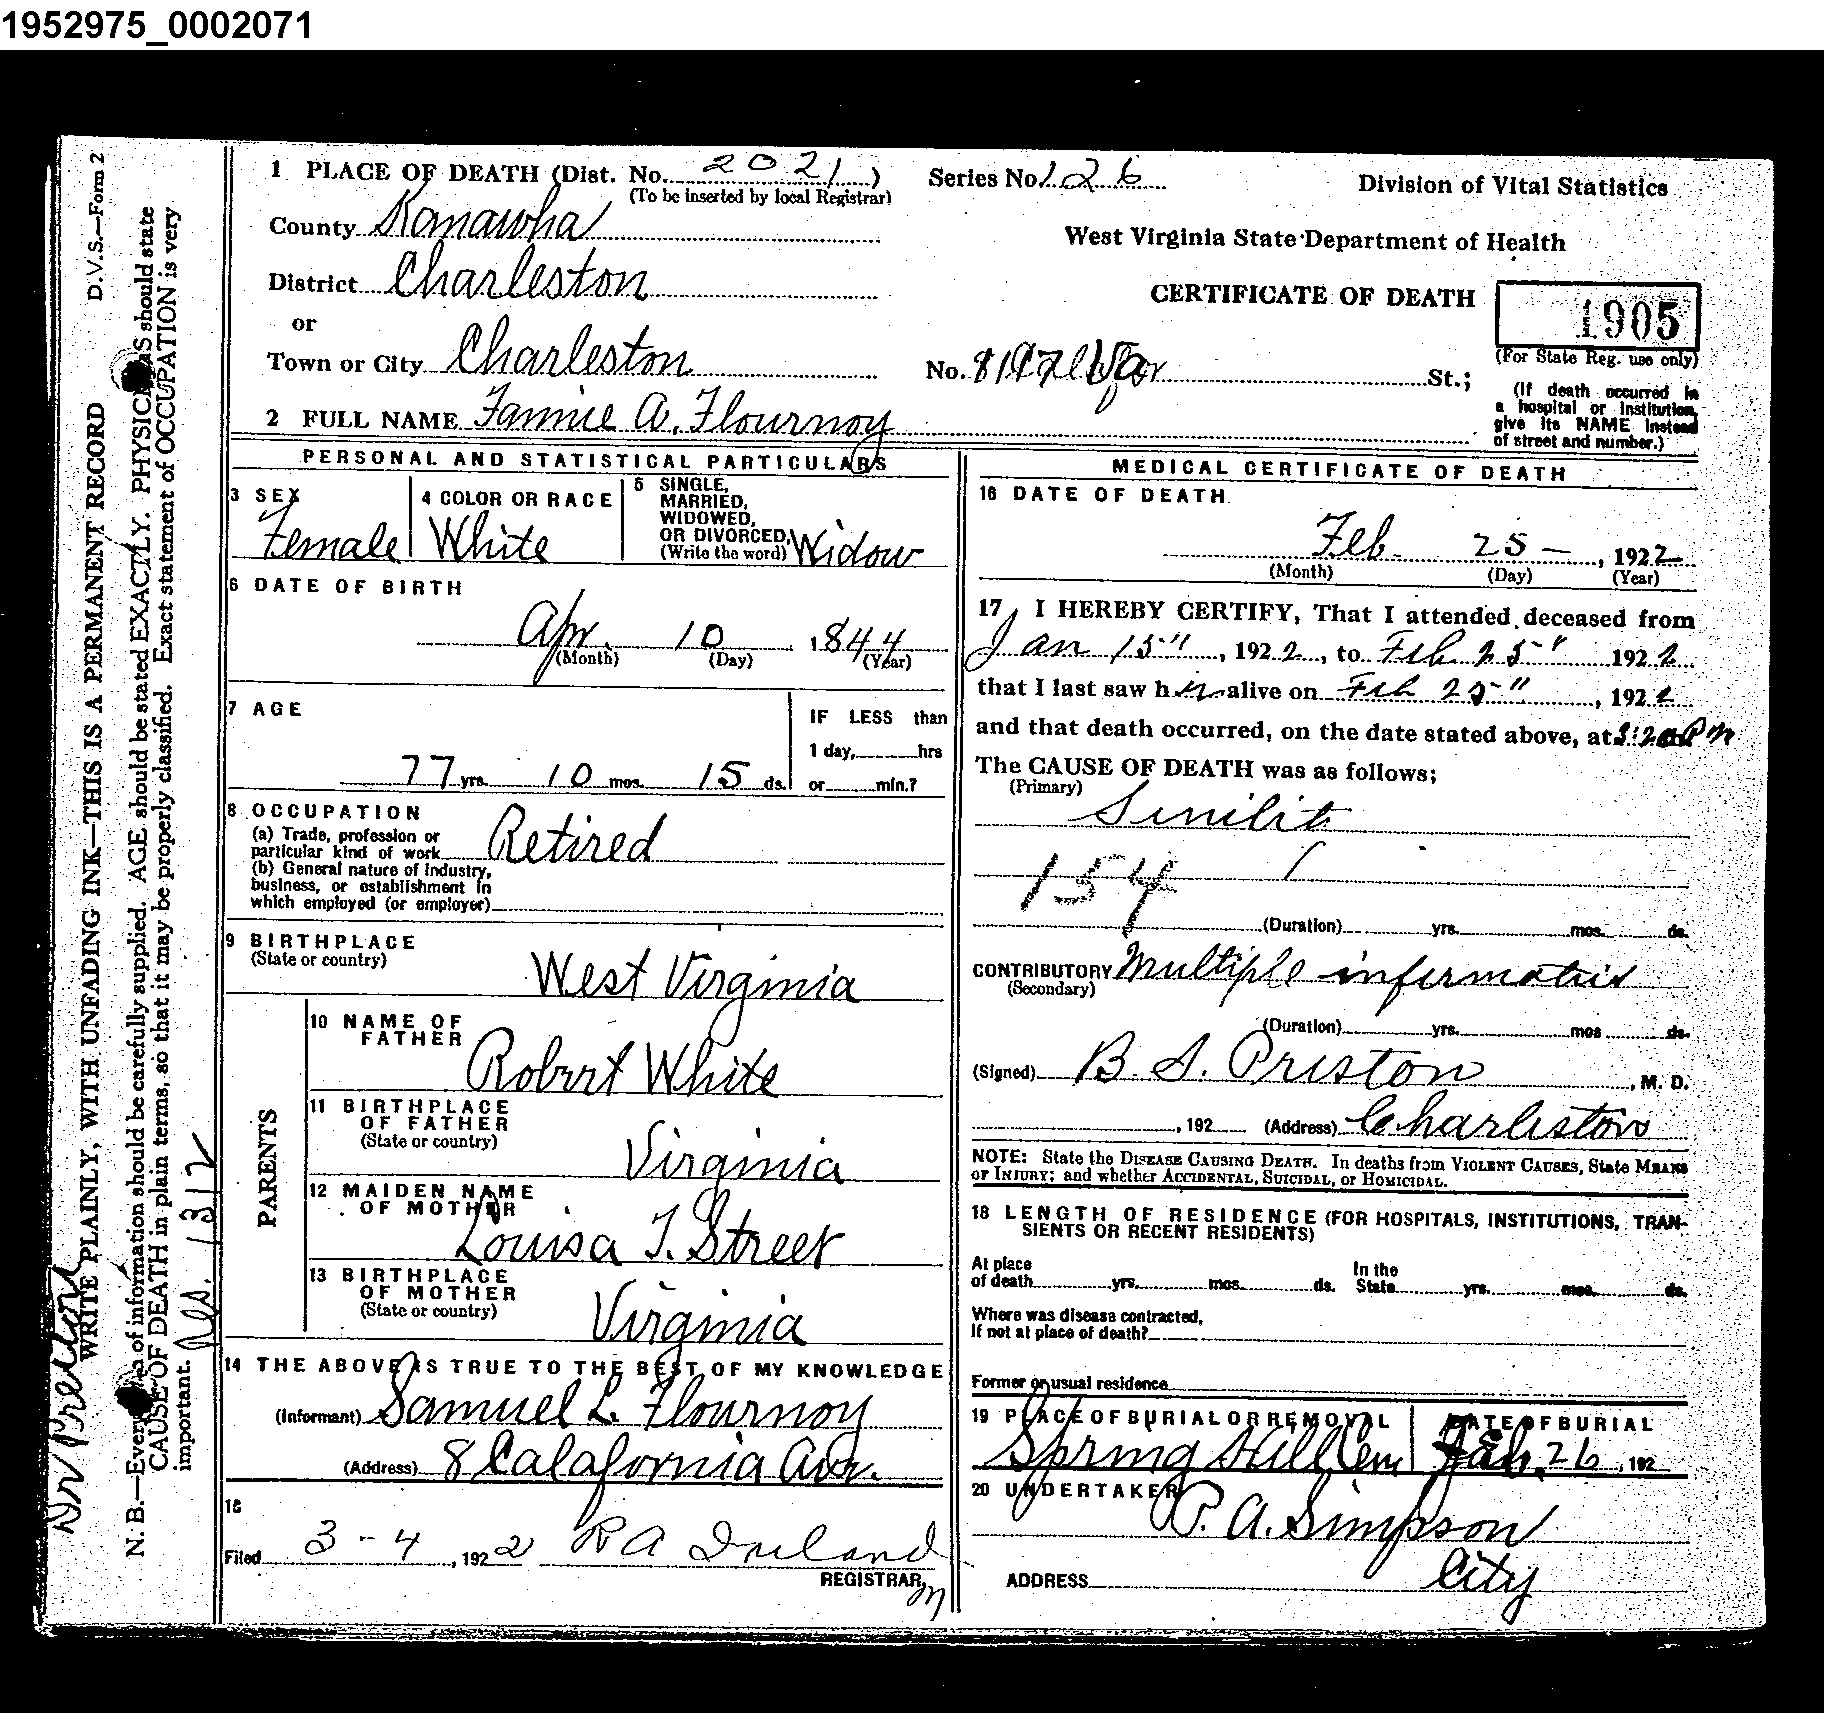 1952975_0002071
D.V.S.—Form 2
WRITE PLAINLY, WITH UNFADING INK—THIS IS A PERMANENT RECORD
N. B.—Every of information should be carefully supplied. AGE should be stated EXACTLY. PHYSICIANS should state
CAUSE OF DEATH in plain terms, so that it may be properly classified. Exact statement of OCCUPATION is very
important.
Dr Preston
Res. 1312
1 PLACE OF DEATH (Dist. No. 2021) Series No. 126 Division of Vital Statistics
(To be inserted by local Registrar)
County Kanawha West Virginia State Department of Health
District Charleston CERTIFICATE OF DEATH 1905
or
(For State Reg. use only)
Town or City Charleston No. St.;
(If death occurred in
a hospital or institution,
give its NAME instead
of street and number.)
2 FULL NAME Fannie A. Flournoy
PERSONAL AND STATISTICAL PARTICULARS
3 SEX
Female
4 COLOR OR RACE
White
5 SINGLE,
MARRIED,
WIDOWED,
OR DIVORCED
(Write the word) Widow
6 DATE OF BIRTH
Apr. 10, 1844
(Month) (Day) (Year)
7 AGE
77 yrs. 10 mos. 15 ds.
IF LESS than
1 day, hrs
or min.?
8 OCCUPATION
(a) Trade, profession or
particular kind of work Retired
(b) General nature of Industry,
business, or establishment in
which employed (or employer)
9 BIRTHPLACE
(State or country)
West Virginia
PARENTS
10 NAME OF
FATHER
Robert White
11 BIRTHPLACE
OF FATHER
(State or country)
Virginia
12 MAIDEN NAME
OF MOTHER
Louisa T. Street
13 BIRTHPLACE
OF MOTHER
(State or country)
Virginia
14 THE ABOVE IS TRUE TO THE BEST OF MY KNOWLEDGE
(Informant) Samuel L. Flournoy
(Address) 8 Calafornia Ave.
15
Filed 3-4, 1922 R A Ireland
REGISTRAR
MEDICAL CERTIFICATE OF DEATH
16 DATE OF DEATH
Feb 25 —, 1922
(Month) (Day) (Year)
17 I HEREBY CERTIFY, That I attended deceased from
Jan 15", 1922, to Feb 25" 1922
that I last saw her alive on Feb 25", 1922
and that death occurred, on the date stated above, at 3:20 P m
The CAUSE OF DEATH was as follows;
(Primary)
Senility
154
(Duration) yrs. mos. ds.
CONTRIBUTORY Multiple
(Secondary)
(Duration) yrs. mos ds.
(Signed) B. S. Preston, M. D.
, 192 (Address) Charleston
NOTE: State the DISEASE CAUSING DEATH. In deaths from VIOLENT CAUSES, State MEANS
OF INJURY; and whether ACCIDENTAL, SUICIDAL, or HOMICIDAL.
18 LENGTH OF RESIDENCE (FOR HOSPITALS, INSTITUTIONS, TRAN-
SIENTS OR RECENT RESIDENTS)
At place In the
of death yrs. mos. ds. State yrs. mos. ds.
Where was disease contracted,
If not at place of death?
Former or usual residence
19 PLACE OF BURIAL OR REMOVAL
Spring Hill Cem
DATE OF BURIAL
Feb. 26, 192
20 UNDERTAKER
P. A. Simpson
ADDRESS City